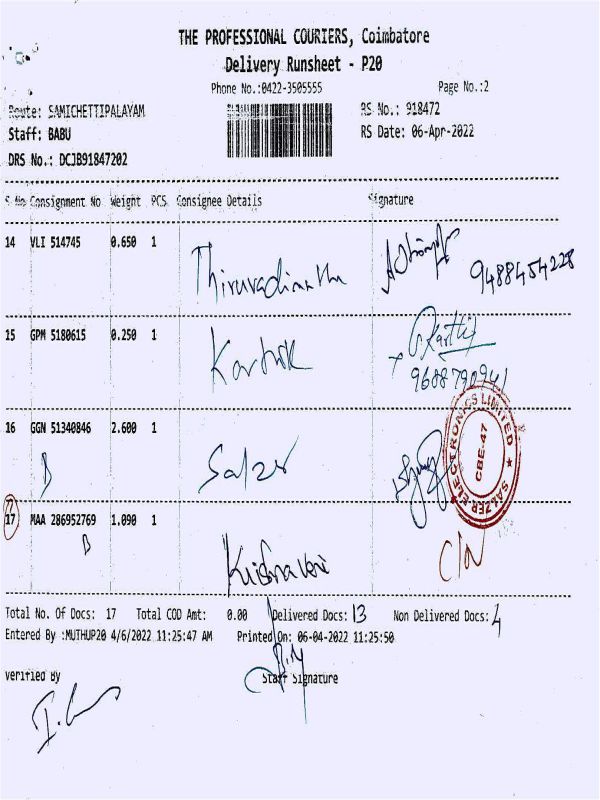 THE PROFESSIONAL COURIERS, Coimbatore
Delivery Runsheet - P20
Phone No.:0422-3505555 Page No.:2
Route: SAMICHETTIPALAYAM RS No.: 918472
Staff: BABU RS Date: 06-Apr-2022
DRS No.: DCJB91847202
S.No Consignment No Weight PCS Consignee Details Signature
14 VLI 514745 0.650 1
9488454228
15 GPM 5180615 0.250 1 Karthik Karthik
9688790941
16 GGN 51340846 2.600 1 Salzer
B
SALZER ELECTRONICS LIMITED ★
CBE-47
17 MAA 286952769 1.090 1 Krishnaveni
B
Total No. Of Docs: 17 Total COD Amt: 0.00 Delivered Docs: 13 Non Delivered Docs: 4
Entered By :MUTHUP20 4/6/2022 11:25:47 AM Printed On: 06-04-2022 11:25:50
Verified By Staff Signature